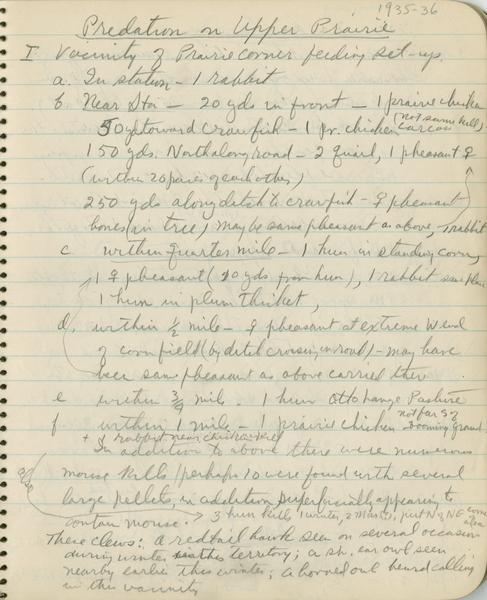 1935-36
Predation on Upper Prairie
I. Vacinity of Prairie corner feeding set-up.
a. In station - 1 rabbit
b Near Sta - 20 yds in front - 1 prairie chicken
50 yds toward crawfish - 1 pr. chicken (not same kill) carcass
150 yds. North along road - 2 quail, 1 pheasant ♀
(within 20 paces of each other)
250 yds along ditch to crawfish - ♀ pheasant
bones (in tree) may be same pheasant as above, 1 rabbit
c within quarter mile - 1 hun in standing corn,
1 ♀ pheasant (40 yds from hun), 1 rabbit same place
1 hun in plum thicket,
d. within ½ mile - ♀ pheasant at extreme W end
of corn field (by ditch crossing road) - may have
been same pheasant as above carried there.
e within ¾ mile 1 hun Otto hange Pasture
f within 1 mile - 1 prairie chicken not far S of booming ground
+ 1 rabbit near chicken kill
In addition to above there were numerous
mouse kills (perhaps 10 were found with several
large pellets, in addition superficially appearing to
contain mouse.
also → 3 hun kills 1 winter, 2 March, just N & NE
These clews: a redtail hawk seen on several occasions
during winter this territory; a sh. ear owl seen
nearby earlier this winter; a horned owl heard calling
in this vacinity